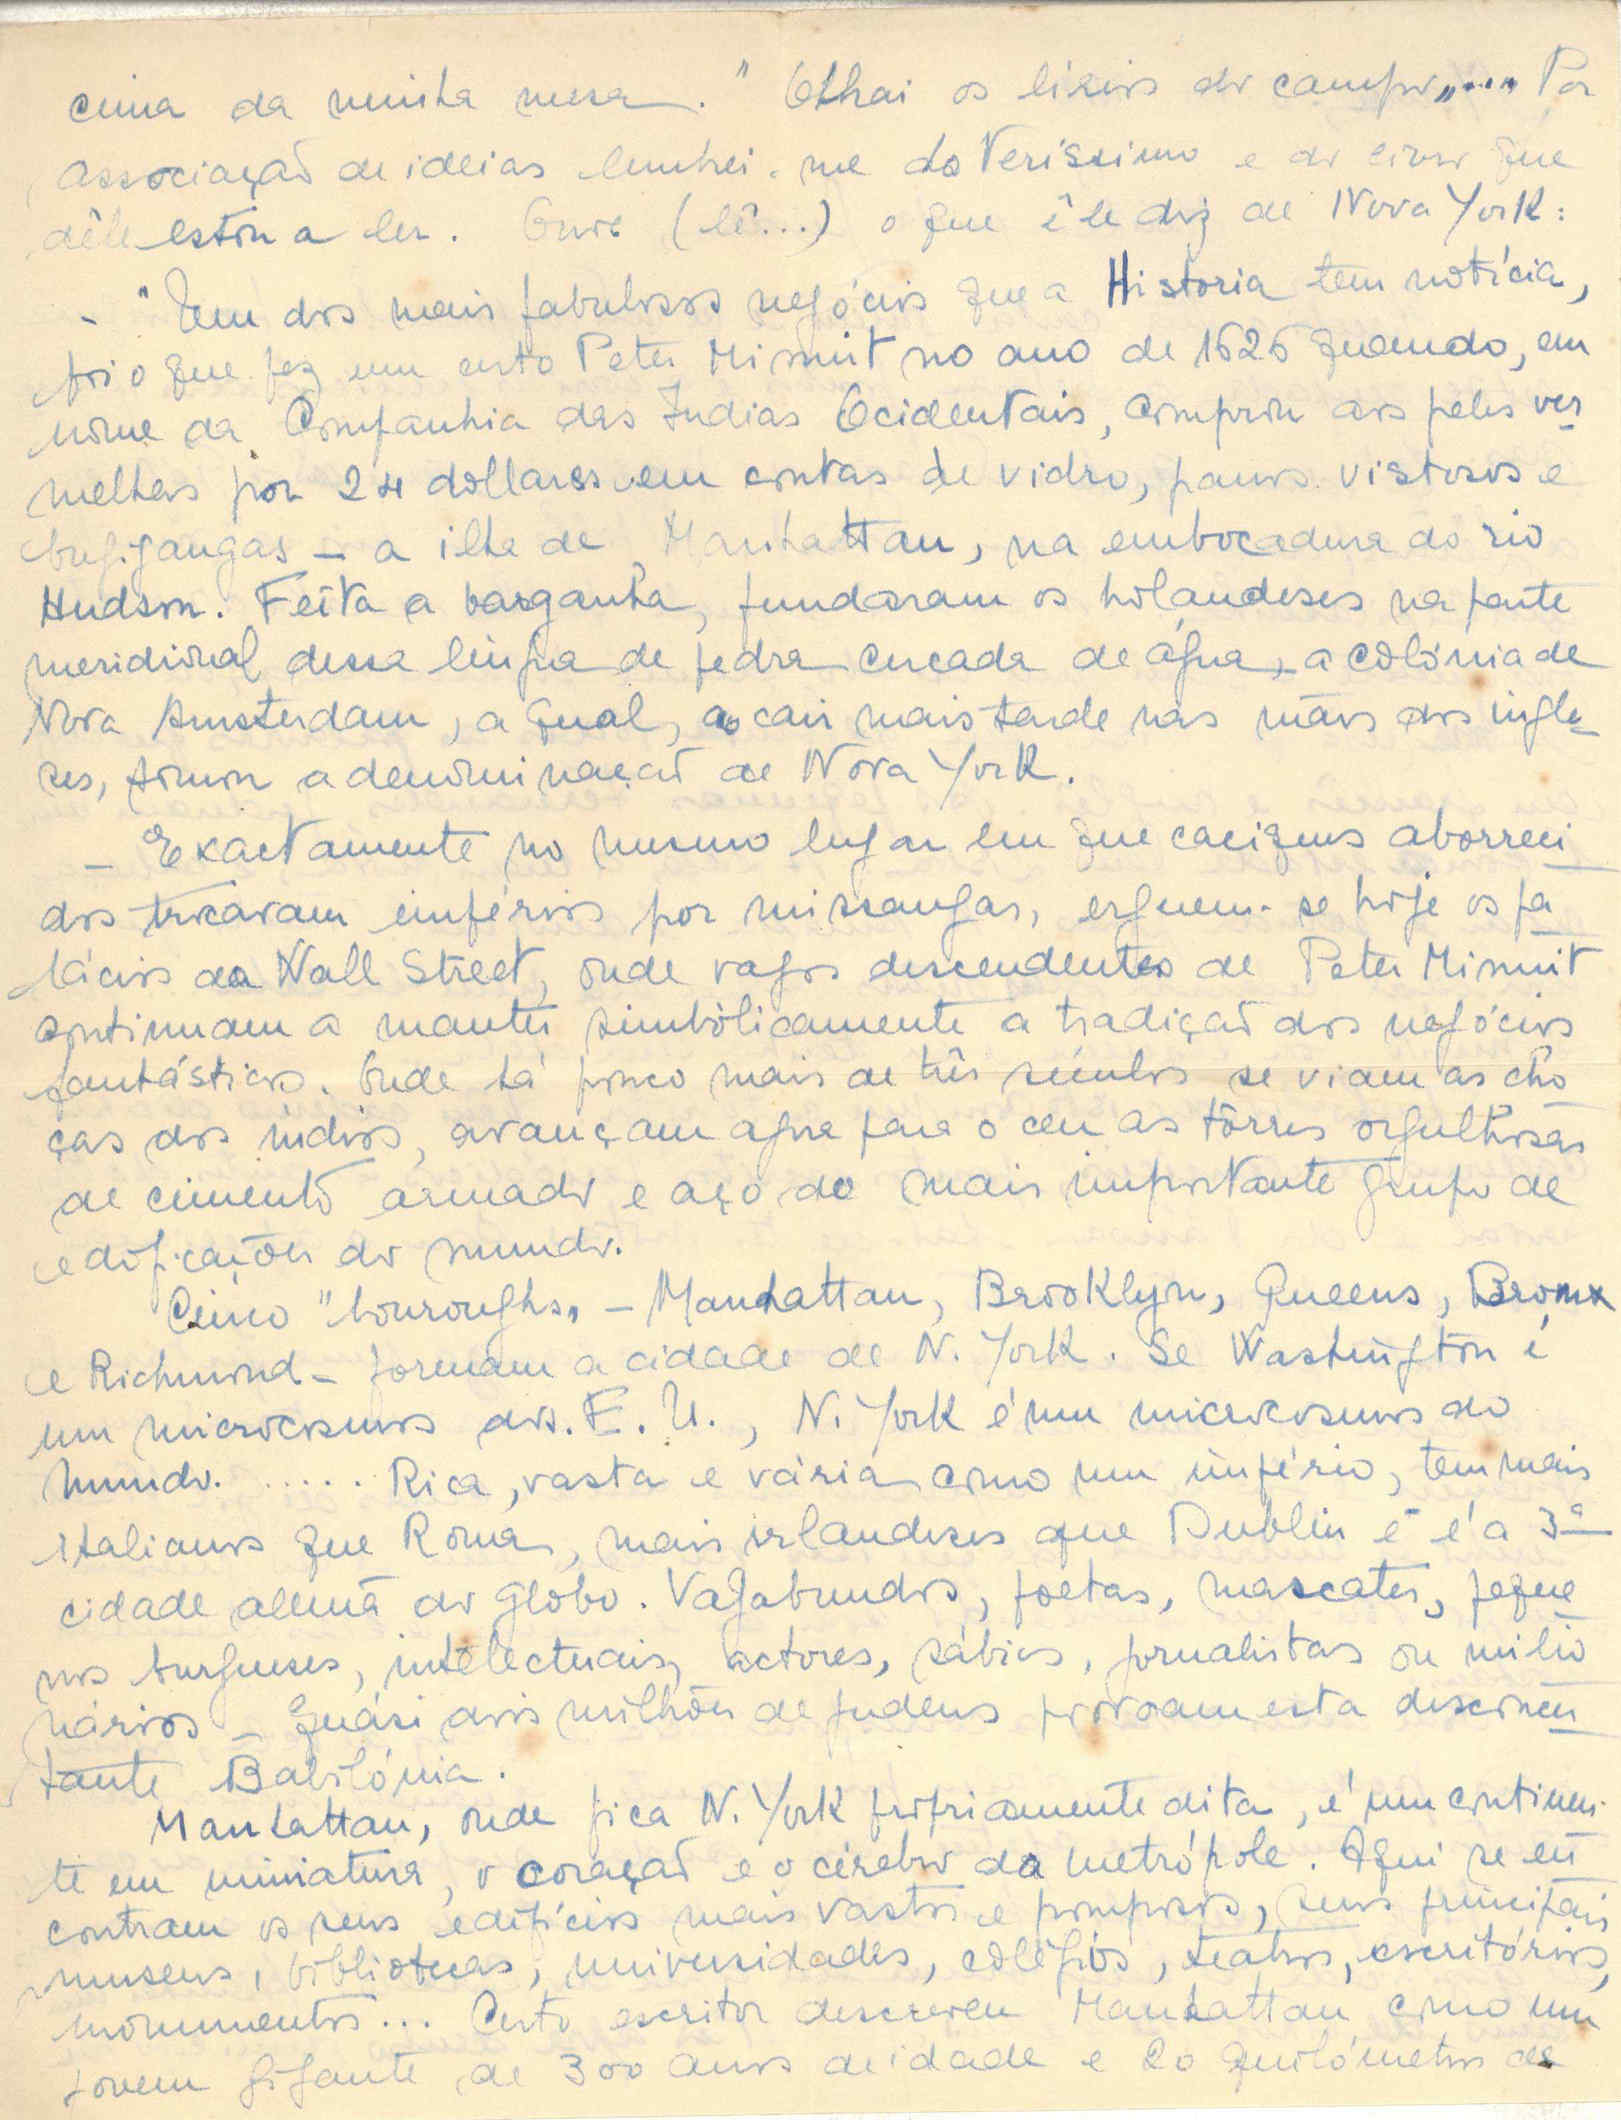 cima da minha mesa. "Olhai os lírios do campo„.... Por
associação de ideias lembrei-me do Veríssimo e do livro que
dêle estou a ler. Ouve (lê...) o que êle diz de Nova York:
- "Um dos mais fabulosos negócios que a Historia tem notícia,
foi o que fez um certo Peter Minuit no ano de 1626 quando, em
nome da Companhia das Indias Ocidentais, comprou aos peles ver
melhas por 24 dollares em contas de vidro, panos vistosos e
bugigangas - a ilha de Manhattan, na embocadura do rio
Hudson. Feita a barganha, fundaram os holandeses na parte
meridional dessa língua de pedra cercada de água, a colónia de
Nova Amsterdam, a qual, ao cair mais tarde nas mãos dos ingle-
ses, tomou a denominação de Nova York.
- Exactamente no mesmo lugar em que caciques aborreci
dos trocavam impérios por missangas, erguem-se hoje os pa
lácios da Wall Street, onde vagos descendentes de Peter Minuit
continuam a manter simbòlicamente a tradição dos negócios
fantásticos. Onde há pouco mais de três séculos se viam as cho
ças dos índios, avançam agora para o ceu as tôrres orgulhosas
de cimento armado e aço do mais importante grupo de
edificações do mundo.
Cinco "bouroughs„ - Manhattan, Brooklyn, Queens, Bronx
e Richmond - formam a cidade de N. York. Se Washington é
um microcosmos dos E. U., N. York é um microcosmos do
mundo. ..... Rica, vasta e vária como um império, tem mais
italianos que Roma, mais irlandeses que Dublin e é a 3ª
cidade alemã do globo. Vagabundos, poetas, mascates, peque
nos burgueses, intelectuais, actores, sábios, jornalistas ou milio
nários - quási dois milhões de judeus povoam esta desconcer
tante Babilónia.
Manhattan, onde fica N. York pròpriamente dita, é um continen-
te em miniatura, o coração e o cérebro da metrópole. Aqui se en
contram os seus edifícios mais vastos e pomposos, seus principais
museus, bibliotecas, universidades, colégios, teatros, escritórios,
monumentos... Certo escritor descreveu Manhattan como um
jovem gigante de 300 anos de idade e 20 quilómetros de